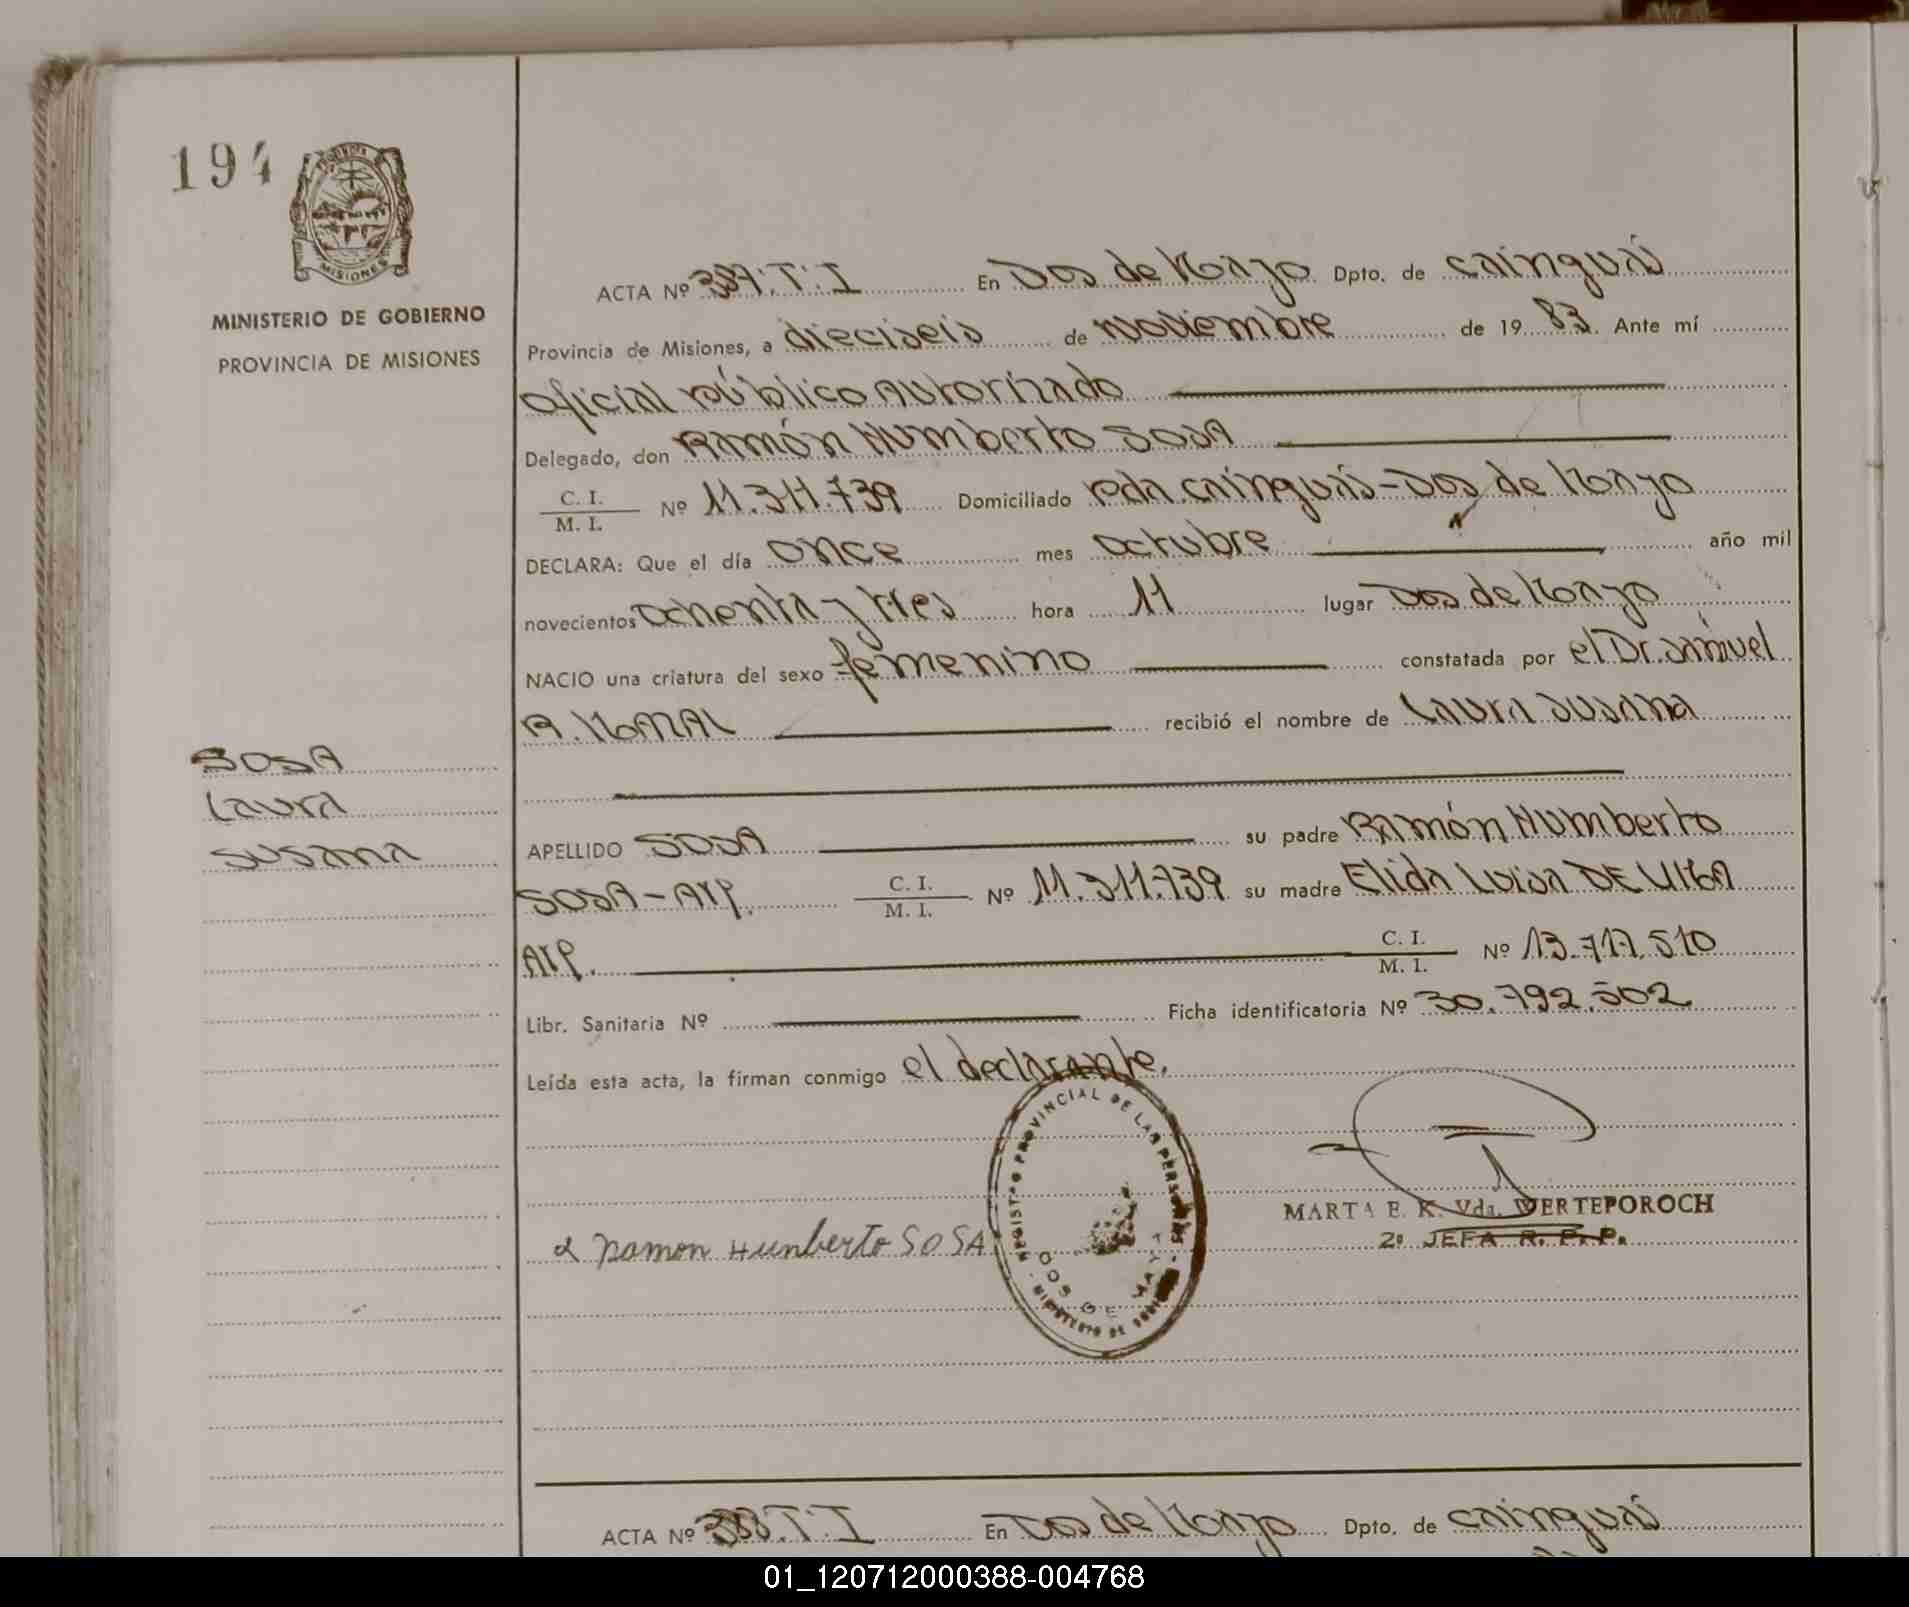 194
PROVINCIA DE
MISIONES
MINISTERIO DE GOBIERNO
PROVINCIA DE MISIONES
ACTA Nº 387.T.I En Dos de Mayo Dpto. de Cainguás
Provincia de Misiones, a dieciseis de Noviembre de 1983. Ante mí
Oficial público Autorizado
Delegado, don Ramón Humberto SOSA
C. I.
M. I.
Nº 11.311.739 Domiciliado Pda. Cainguás - Dos de Mayo
DECLARA: Que el día once mes octubre año mil
novecientos ochenta y tres hora 11 lugar Dos de Mayo
NACIO una criatura del sexo femenino constatada por el Dr. Samuel
A. recibió el nombre de Laura Susana
SOSA
Laura
Susana
APELLIDO SOSA su padre Ramón Humberto
SOSA - Arg. C. I. M. I. Nº 11.311.739 su madre Elida Luisa DE LIMA
Arg. C. I. M. I. Nº 13.717.510
Libr. Sanitaria Nº Ficha identificatoria Nº 30.792.502
Leída esta acta, la firman conmigo el declarante.
REGISTRO PROVINCIAL DE LAS PERSONAS
MINISTERIO DE GOBIERNO
DOS DE MAYO
MARTA E. K. Vda. WERTEPOROCH
2º JEFA R. P. P.
Ramon Humberto SOSA
ACTA Nº 388.T.I En Dos de Mayo Dpto. de Cainguás
01_120712000388-004768